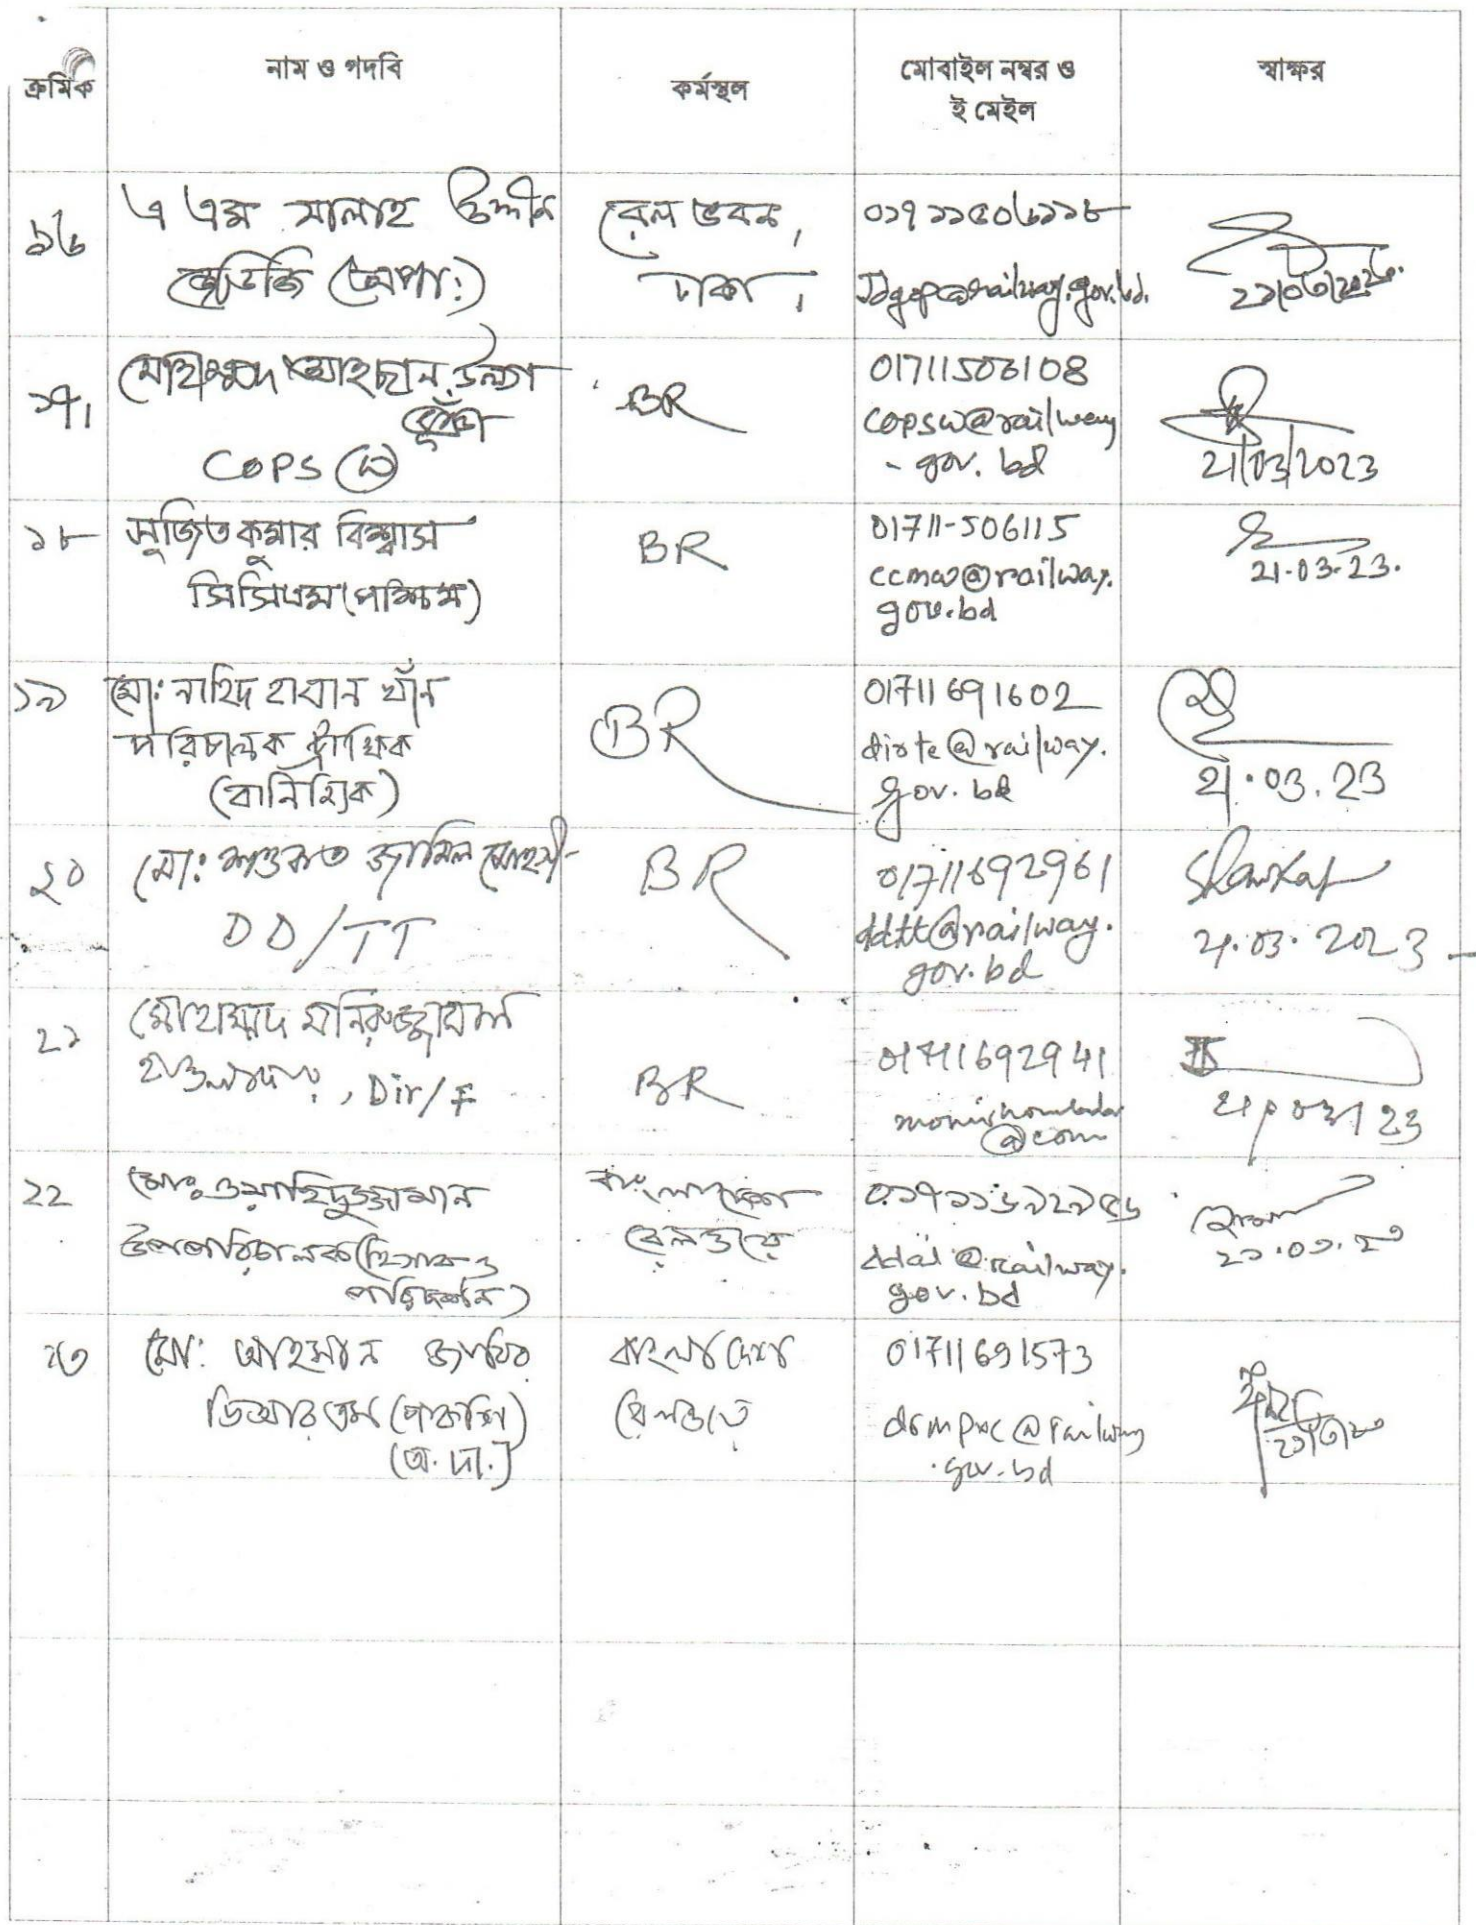 ক্রমিক
নাম ও পদবি
কর্মস্থল
মোবাইল নম্বর ও
ই মেইল
স্বাক্ষর
১৬
এ এম সালাহ উদ্দীন
জেডিজি (অপাঃ)
রেল ভবন,
ঢাকা।
০১৭১১৫০৬১১৮
Jdgop@railway.gov.bd.
১৭।
মোহাম্মদ আহছান উল্যা
ভূঁঞা
COPS (W)
BR
01711506108
copsw@railway
- gov. bd
21/03/2023
১৮
সুজিত কুমার বিশ্বাস
সিসিএম (পশ্চিম)
BR
01711-506115
ccmw@railway.
gov.bd
21.03.23.
১৯
মো: নাহিদ হাসান খাঁন
পরিচালক ট্রাফিক
(বানিজ্যিক)
BR
01711691602
dirtc@railway.
gov. bd
21.03.23
২০
মো: শওকত জামিল মোহসী
DD/TT
BR
01711692961
ddtt@railway.
gov.bd
Shawkat
21.03.2023
২১
মোহাম্মদ মনিরুজ্জামান
হাওলাদার, Dir/F
BR
01711692941
@com
21/03/23
২২
মোঃ ওয়াহিদুজ্জামান
উপপরিচালক (হিসাব ও
পরিদর্শন)
বাংলাদেশ
রেলওয়ে
০১৭১১৬৯২৯৫৬
ddai@railway.
gov.bd
২১.০৩.২৩
২৩
মো: আহসান জাবির
ডিআরএম (পাকশি)
(অ.দা.)
বাংলাদেশ
রেলওয়ে
01711691573
drmpxc@railway
.gov.bd